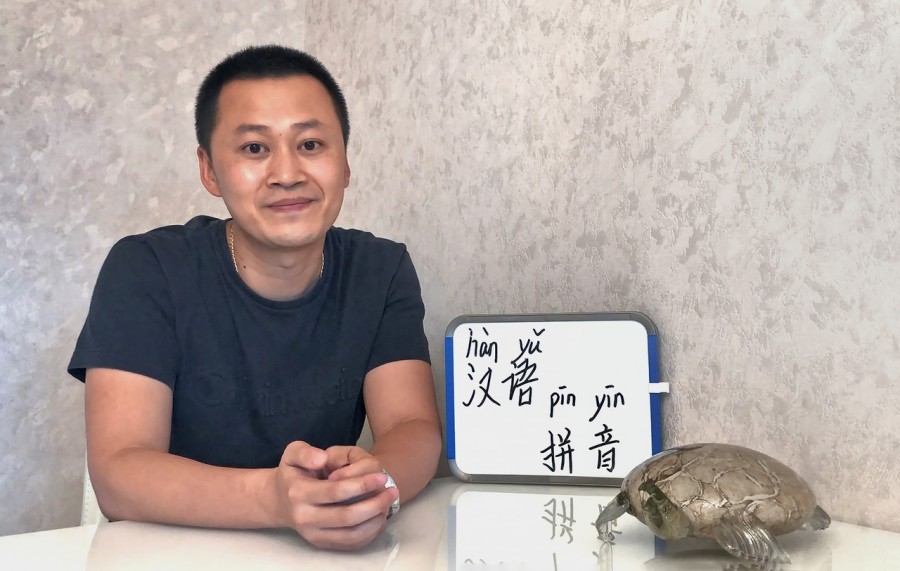 hàn yǔ
汉语
pīn yīn
拼音